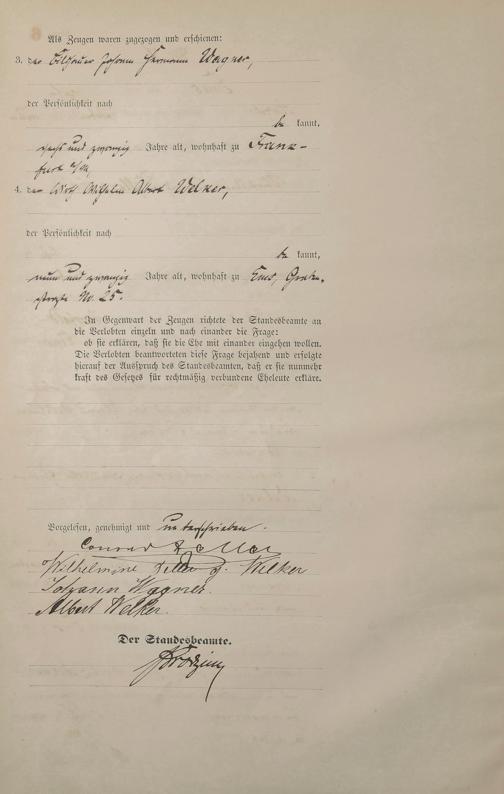 Als Zeugen waren zugezogen und erschienen:
3. der Bildhauer Johann Hermann Wagner,
der Persönlichkeit nach
be kannt,
sechs und zwanzig Jahre alt, wohnhaft zu Frank-
furt a/M,
4. der Wilhelm Albert Welker,
der Persönlichkeit nach
be kannt,
neun und zwanzig Jahre alt, wohnhaft zu Ems, Graben-
straße No. 25.
In Gegenwart der Zeugen richtete der Standesbeamte an
die Verlobten einzeln und nach einander die Frage:
ob sie erklären, daß sie die Ehe mit einander eingehen wollen.
Die Verlobten beantworteten diese Frage bejahend und erfolgte
hierauf der Ausspruch des Standesbeamten, daß er sie nunmehr
kraft des Gesetzes für rechtmäßig verbundene Eheleute erkläre.
Vorgelesen, genehmigt und unterschrieben.
Conrad
Wilhelmine g. Welker
Johann Wagner.
Albert Welker.
Der Standesbeamte.